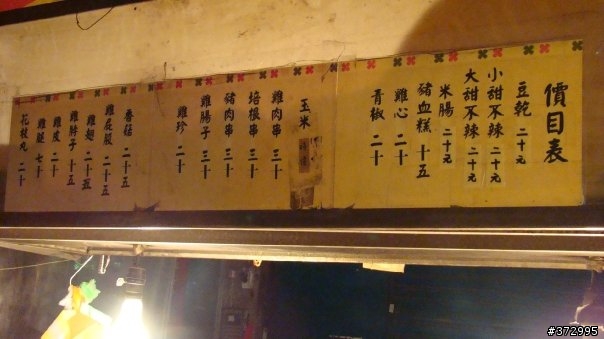 價目表
豆乾 二十元
小甜不辣 二十元
大甜不辣 二十元
米腸 二十元
豬血糕 十五
雞心 二十
青椒 二十
玉米
雞肉串 三十
培根串 三十
豬肉串 三十
雞腸子 三十
雞珍 二十
香菇 二十五
雞屁股 二十五
雞翅 二十五
雞脖子 十五
雞皮 二十
雞腿 七十
花枝丸 二十
#372995